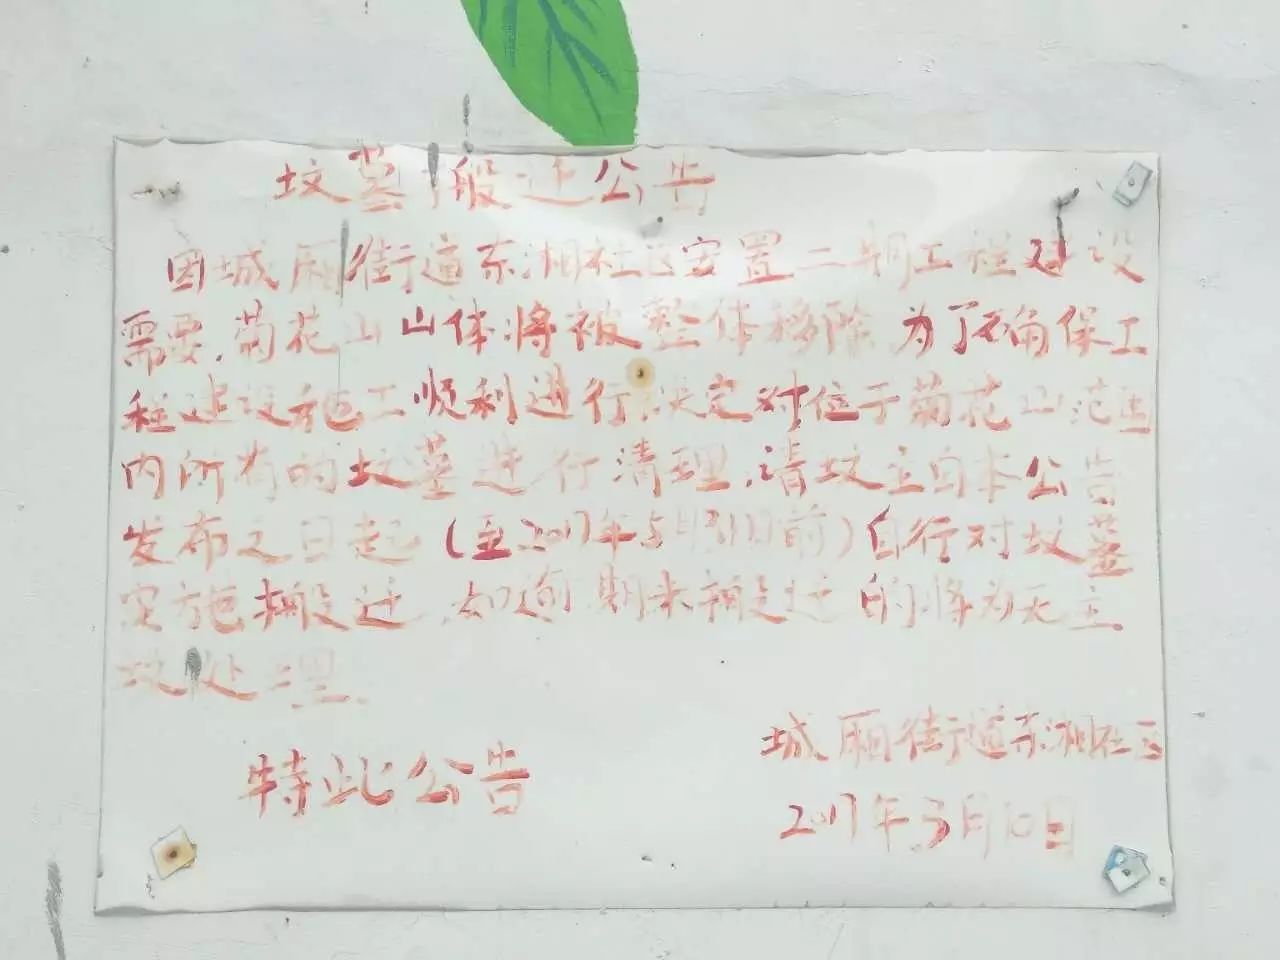 坟墓搬迁公告
因城厢街道东湘社区安置二期工程建设
需要,菊花山山体将被整体移除,为了确保工
程建设施工顺利进行,决定对位于菊花山范围
内所有的坟墓进行清理,请坟主自本公告
发布之日起(至2017年5月31日前)自行对坟墓
实施搬迁,如逾期未搬迁的将为无主
坟处理.
特此公告
城厢街道东湘社区
2017年3月10日